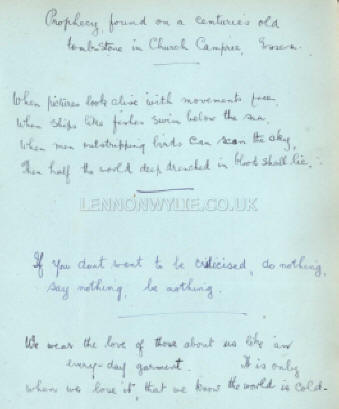 Prophecy found on a centuries old
tombstone in Church Campree, Essex.
When pictures look alive with movements free
When ships like fishes swim below the sea.
When men outstripping birds can scan the sky,
Then half the world deep drenched in blood shall lie.
LENNONWYLIE.CO.UK
If you dont want to be criticised, do nothing,
say nothing, be nothing.
We wear the love of those about us like an
every-day garment. It is only
when we lose it, that we know the world is cold.